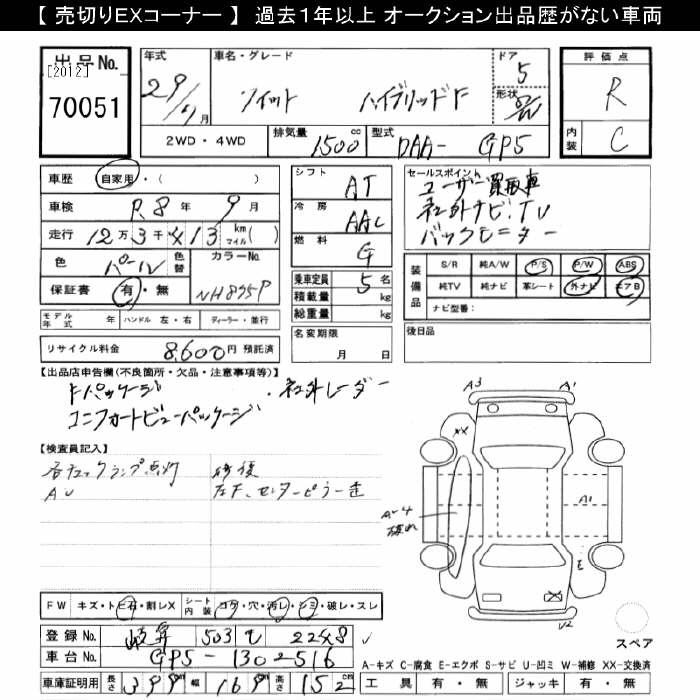 【 売切りEXコーナー 】 過去１年以上 オークション出品歴がない車両
出品No.
[2012]
70051
年式 29/ 月
車名・グレード フィット ハイブリッドF
ドア 5
形状
評価点 R
内装 C
2WD・4WD 排気量 1500 cc 型式 DAA- GP5
車歴 自家用・( )
車検 R8 年 9 月
走行 12万3千413 km マイル( )
色 パール 色替 カラーNo. NH875P
保証書 有・無
モデル年式 年 ハンドル 左・右 ディーラー・並行
リサイクル料金 8,600円 預託済
シフト AT
冷房 AAC
燃料 G
乗車定員 5 名
積載量 kg
総重量 kg
名変期限 月 日
セールスポイント
ユーザー買取車
社外ナビ・TV
バックモニター
装備品 S/R 純A/W P/S P/W ABS
純TV 純ナビ 革シート 外ナビ エアB
ナビ型番：
後日品
【出品店申告欄(不良箇所・欠品・注意事項等)】
Fパッケージ ・社外レーダー
コンフォートビューパッケージ
【検査員記入】
各チェックランプ点灯 修復
AU 左F、センターピラー歪
A3
A1
XX
A1
A4
E
X
U2
スペア
FW キズ・トビ石・割レX シート内装 コゲ・穴・汚レ・シミ・破レ・スレ
登録 No. 503 2248
車台 No. GP5-1302516
車庫証明用 長さ 399 cm 幅 169 cm 高さ 152 cm
A-キズ C-腐食 E-エクボ S-サビ U-凹ミ W-補修 XX-交換済
工具 有・無 ジャッキ 有・無